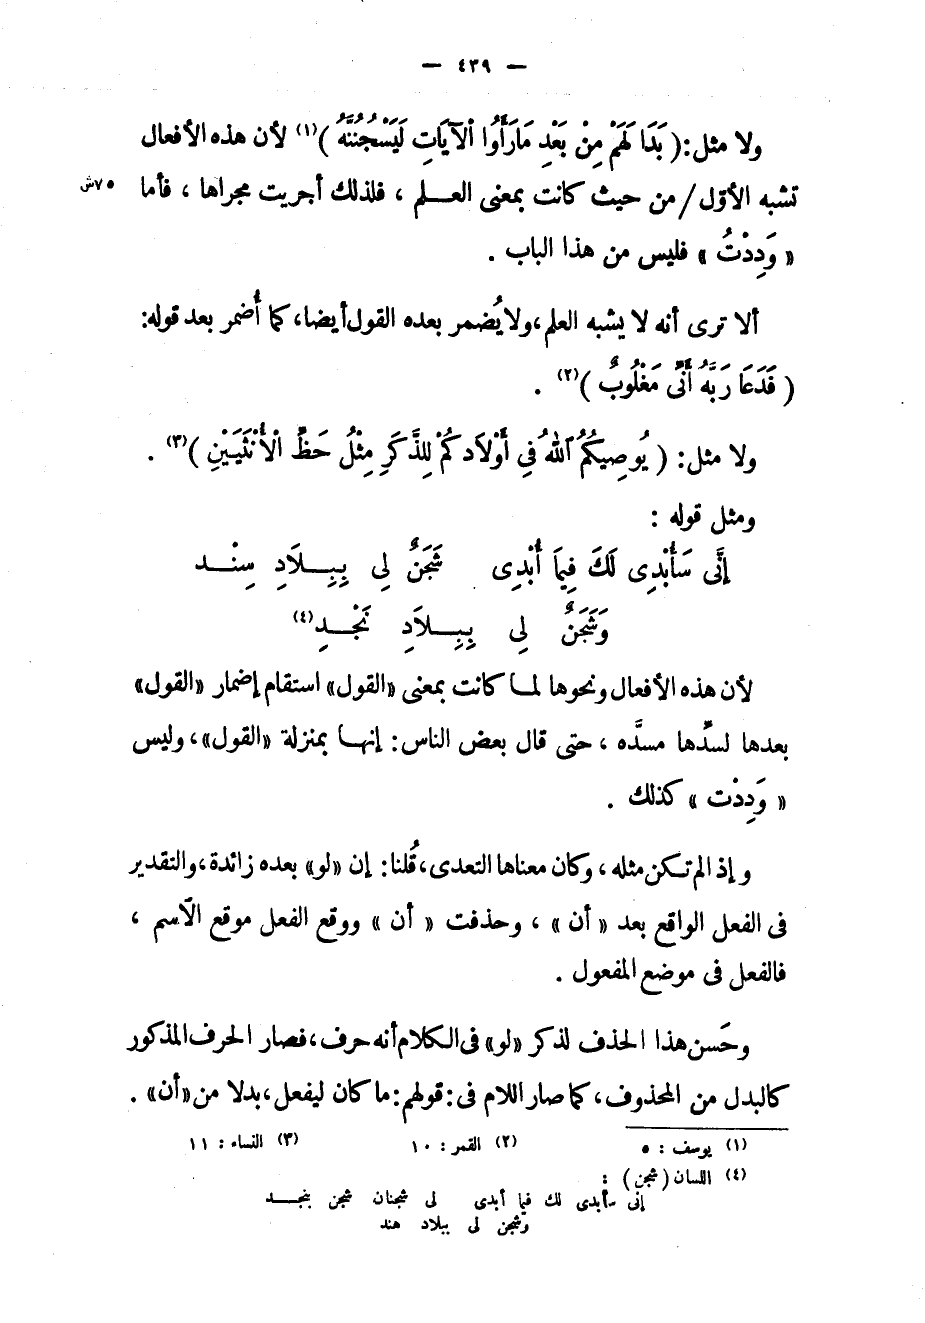 — ٤٣٩ —
ولا مثل: ( بَدَا لَهَمْ مِنْ بَعْدِ مَارَأَوُا الْآيَاتِ لَيَسْجُنُنَّهُ )(١) لأن هذه الأفعال
تشبه الأوّل / من حيث كانت بمعنى العـلم ، فلذلك أجريت مجراها ، فأما ٧٥ش
« وَدِدْتُ » فليس من هذا الباب .
ألا ترى أنه لا يشبه العلم، ولا يُضمر بعده القول أيضا، كما أُضمر بعد قوله:
( فَدَعَا رَبَّهُ أَنِّى مَغْلُوبٌ )(٢) .
ولا مثل: ( يُوصِيكُمُ ٱللهُ فِى أَوْلَادِكُمْ لِلذَّكَرِ مِثْلُ حَظِّ الْأُنْثَيَيْنِ )(٣) .
ومثل قوله :
إنَّى سَأُبْدِى لَكَ فِيمَا أُبْدِى شَجَنٌ لِى بِبِـلَادِ سِنْـد
وَشَجَنٌ لِى بِبِـلَادِ نَجْـدِ(٤)
لأن هذه الأفعال ونحوها لمـا كانت بمعنى «القول» استقام إضمار «القول»
بعدها لسدِّها مسدَّه ، حتى قال بعض الناس: إنهـا بمنزلة «القول»، وليس
« وَدِدْت » كذلك .
وإذا لم تكن مثله ، وكان معناها التعدى، قُلنا: إن «لو» بعده زائدة، والتقدير
فى الفعل الواقع بعد « أن » ، وحذفت « أن » ووقع الفعل موقع الاسم ،
فالفعل فى موضع المفعول .
وحَسن هذا الحذف لذكر «لو» فى الكلام أنه حرف، فصار الحرف المذكور
كالبدل من المحذوف، كما صار اللام فى: قولهم: ما كان ليفعل، بدلا من «أن» .
(١) يوسف : ٥ (٢) القمر : ١٠ (٣) النساء : ١١
(٤) اللسان ( شجن ) :
إنى سأبدى لك فيما أبدى لى شجنان شجن بنجـد
وشجن لى ببلاد هند